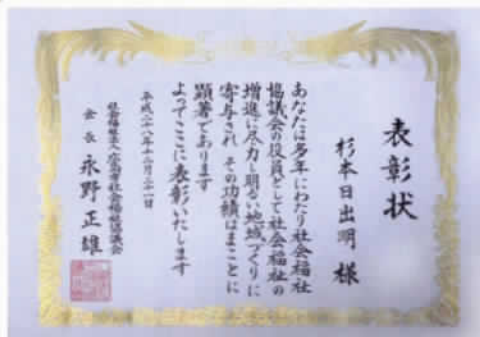 表彰状
杉本日出明 様
あなたは多年にわたり社会福祉
協議会の役員として社会福祉の
増進に尽力し明るい地域づくりに
寄与され その功績はまことに
顕著であります
よってここに表彰いたします
平成二八年十二月二一日
社会福祉法人 広島市社会福祉協議会
会長 永野正雄